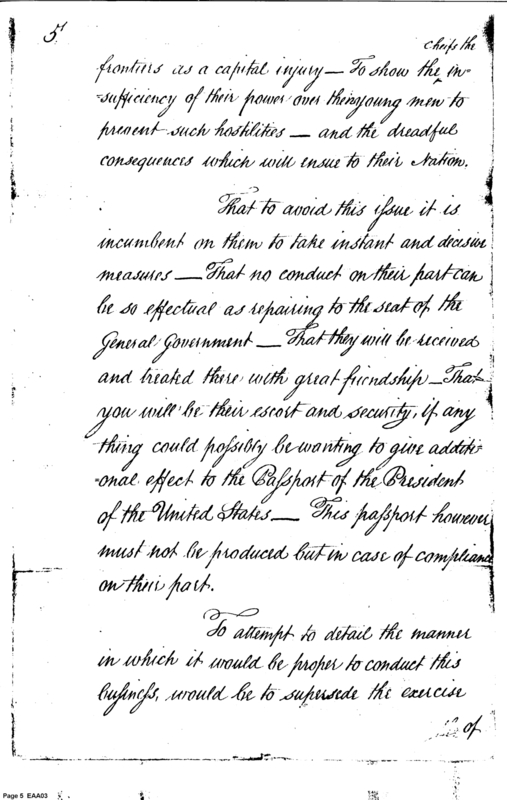 5
cheifs the
frontiers as a capital injury — To show the ‸ in-
-sufficiency of their power over their young men to
prevent such hostilities — and the dreadful
consequences which will ensue to their Nation.
That to avoid this issue it is
incumbent on them to take instant and decisive
measures — That no conduct on their part can
be so effectual as repairing to the seat of the
General Government — That they will be received
and treated there with great friendship — That
you will be their escort and security, if any
thing could possibly be wanting to give additi-
-onal effect to the Passport of the President
of the United States — This passport however
must not be produced but in case of compliance
on their part.
To attempt to detail the manner
in which it would be proper to conduct this
business, would be to supersede the exercise
of
Page 5 EAA03